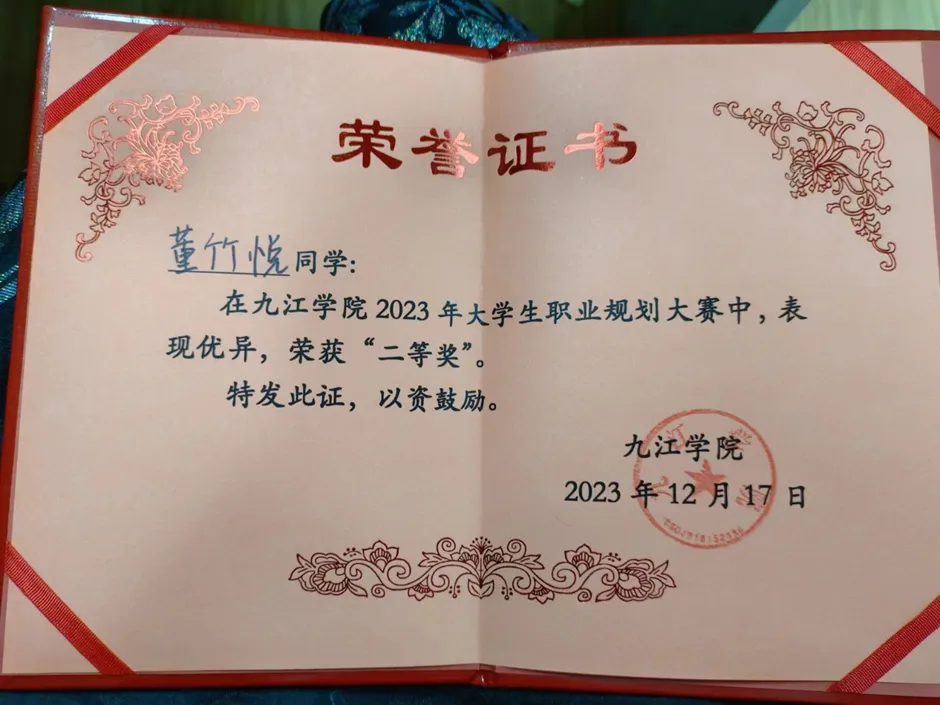 荣誉证书
董竹悦同学：
在九江学院2023年大学生职业规划大赛中，表
现优异，荣获“二等奖”。
特发此证，以资鼓励。
九江学院
2023年12月17日